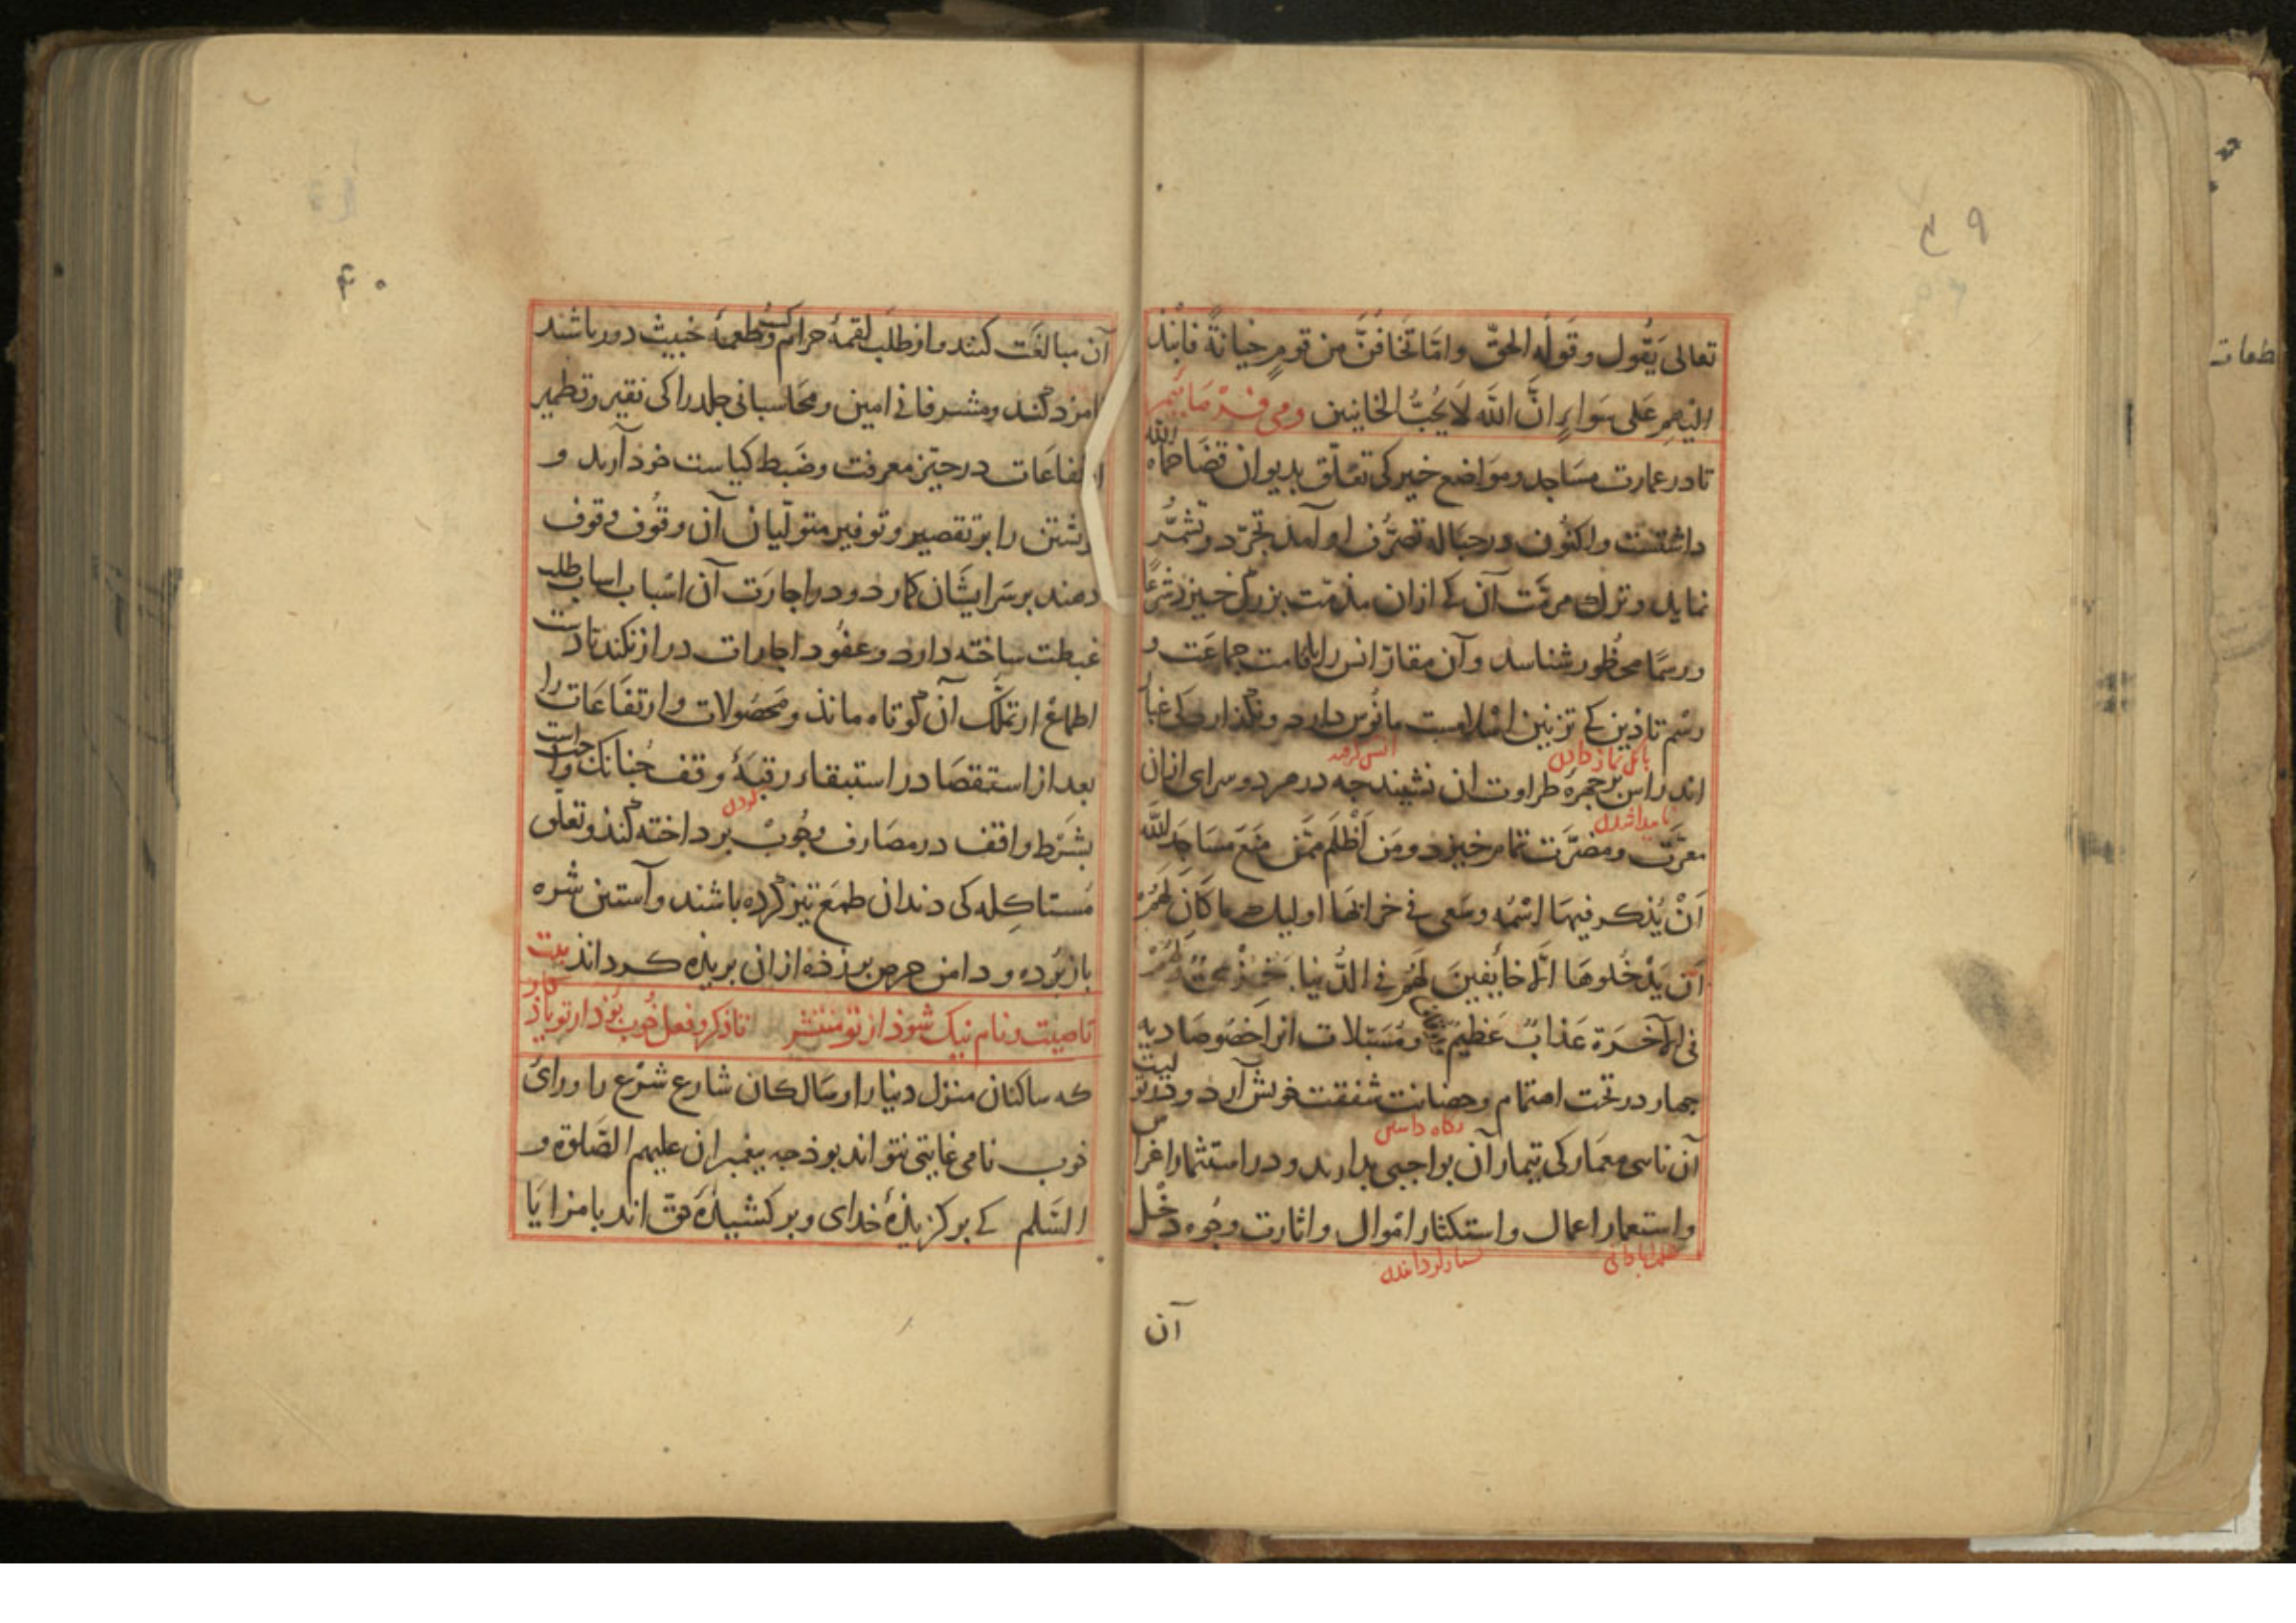 ۳۹
تعالی یَقُول وقَولُه الحقّ وامّا تَخافَنَّ من قومٍ خیانةً فانْبذ
الیهم عَلی سَواءٍ انَّ اللّه لا یُحِبُّ الخاینین ومی فرماییم
تا در عمارت مسَاجد ومَواضع خیر کی تعلّق بدیوان قضَا حماه اللّه
داشتست واکنُون در حبَاله تصرُّف او آمد تجرّد وتشمُّر
نماید وترك مرمّت آن کی ازان مذمّت بزرگ خیزد شرعًا
ورسمًا محظور شناسد وآن مقارّ انس را باقامت جماعَت و
رسْم تاذین کی تزیین اسْلامست مانُوس دارد ونگذارد کی غبار
بانگ نماز دادن
انس گرفته
اندراس بر چهرهٔ طراوت ان نشیند چه در هر دو سرای ازان
ناپیدا شدن
معرّت ومضرّت تمام خیزد ومَن اَظْلَم مِمّن مَنَعَ مسَاجِدَ اللّه
اَنْ یُذکر فیهَا اسْمُه وسَعی فی خرابهَا اولیك ما کَانَ لَهُمْ
اَن یَدْخُلوهَا الّا خایِفینَ لَهُمْ فی الدُّنیا خِزْیٌ ولَهُمْ
فی الآخرَة عَذابٌ عَظیمٌ ومُسَبّلات انرا خصُوصَا دیه
چهار در تحت اهتمام وحضانت شفقت خویش آرد و در تولیت
نگاه داشتن
آن ناسی معمَار کی تیمار آن بواجبی بدارند ودر استثمار اغراس
واستعمار اعمال واستکثار امْوال واثارت وجُوه دخْل
آن
۴۰
آن مبالغَت کنند واز طلَب لقمهٔ حرام وکسب طعمهٔ خبیث دور باشند
نامزد کند ومشرفانی امین ومحَاسبانی جلد را کی نقیر وقطمیر
ارتفاعَات در حیّز معرفت وضَبط کیاست خود آرند و
خویشتن را بر تقصیر وتوفیر متولّیان آن وقُوف وقوف
دهند بر سَر ایشَان کمارد ودر اجارَت آن اسْباب اسباب طلب
غبطت ساخته دارد وعقُود اجارات دراز نکند تا دست
اطماع از تملّك آن کوتاه ماند ومحصُولات وارتفَاعَات را
بعد از استقصَا در استبقاء رقبَهٔ وقف چُنانك واجب است
بشَرْط واقف در مصَارف وجُوب پرداخته کند وتعلّق
مُستاکله کی دندان طمَع تیز کرده باشند وآستین شره
باز برده ودامن حرص بر زده ازان بریده کرداند بیت
تا صیت ونام نیک شود از تو منتشر   تا ذکر وفعل خُوب بُود از تو یادکار
که ساکنان منزل دنیا را وسَالکان شارع شرْع را ورای
خوب نامی غایتی نتواند بود چه پیغمبران علیهم الصَّلوة و
السَّلم کی برکزیدهٔ خدای وبر کشیدهٔ حقّ اند با مزایا